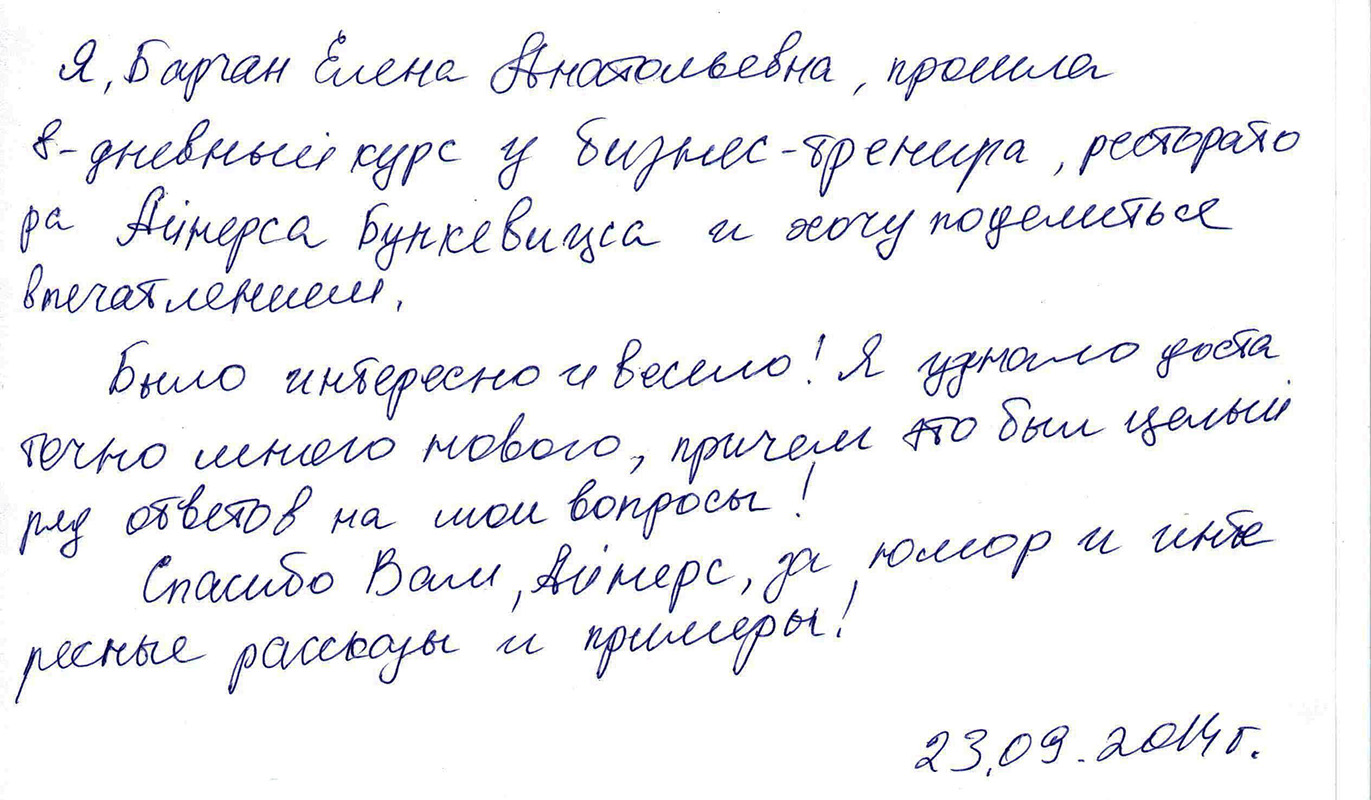 Я, Барчан Елена Анатольевна, прошла
8-дневный курс у бизнес-тренира, ресторато
ра Айнерса Бункевицса и хочу поделиться
впечатлением.
Было интересно и весело! Я узнало доста
точно много нового, причем это был целый
ряд ответов на мои вопросы!
Спасибо Вам, Айнерс, за юмор и инте
ресные рассказы и примеры!
23.09.2014г.